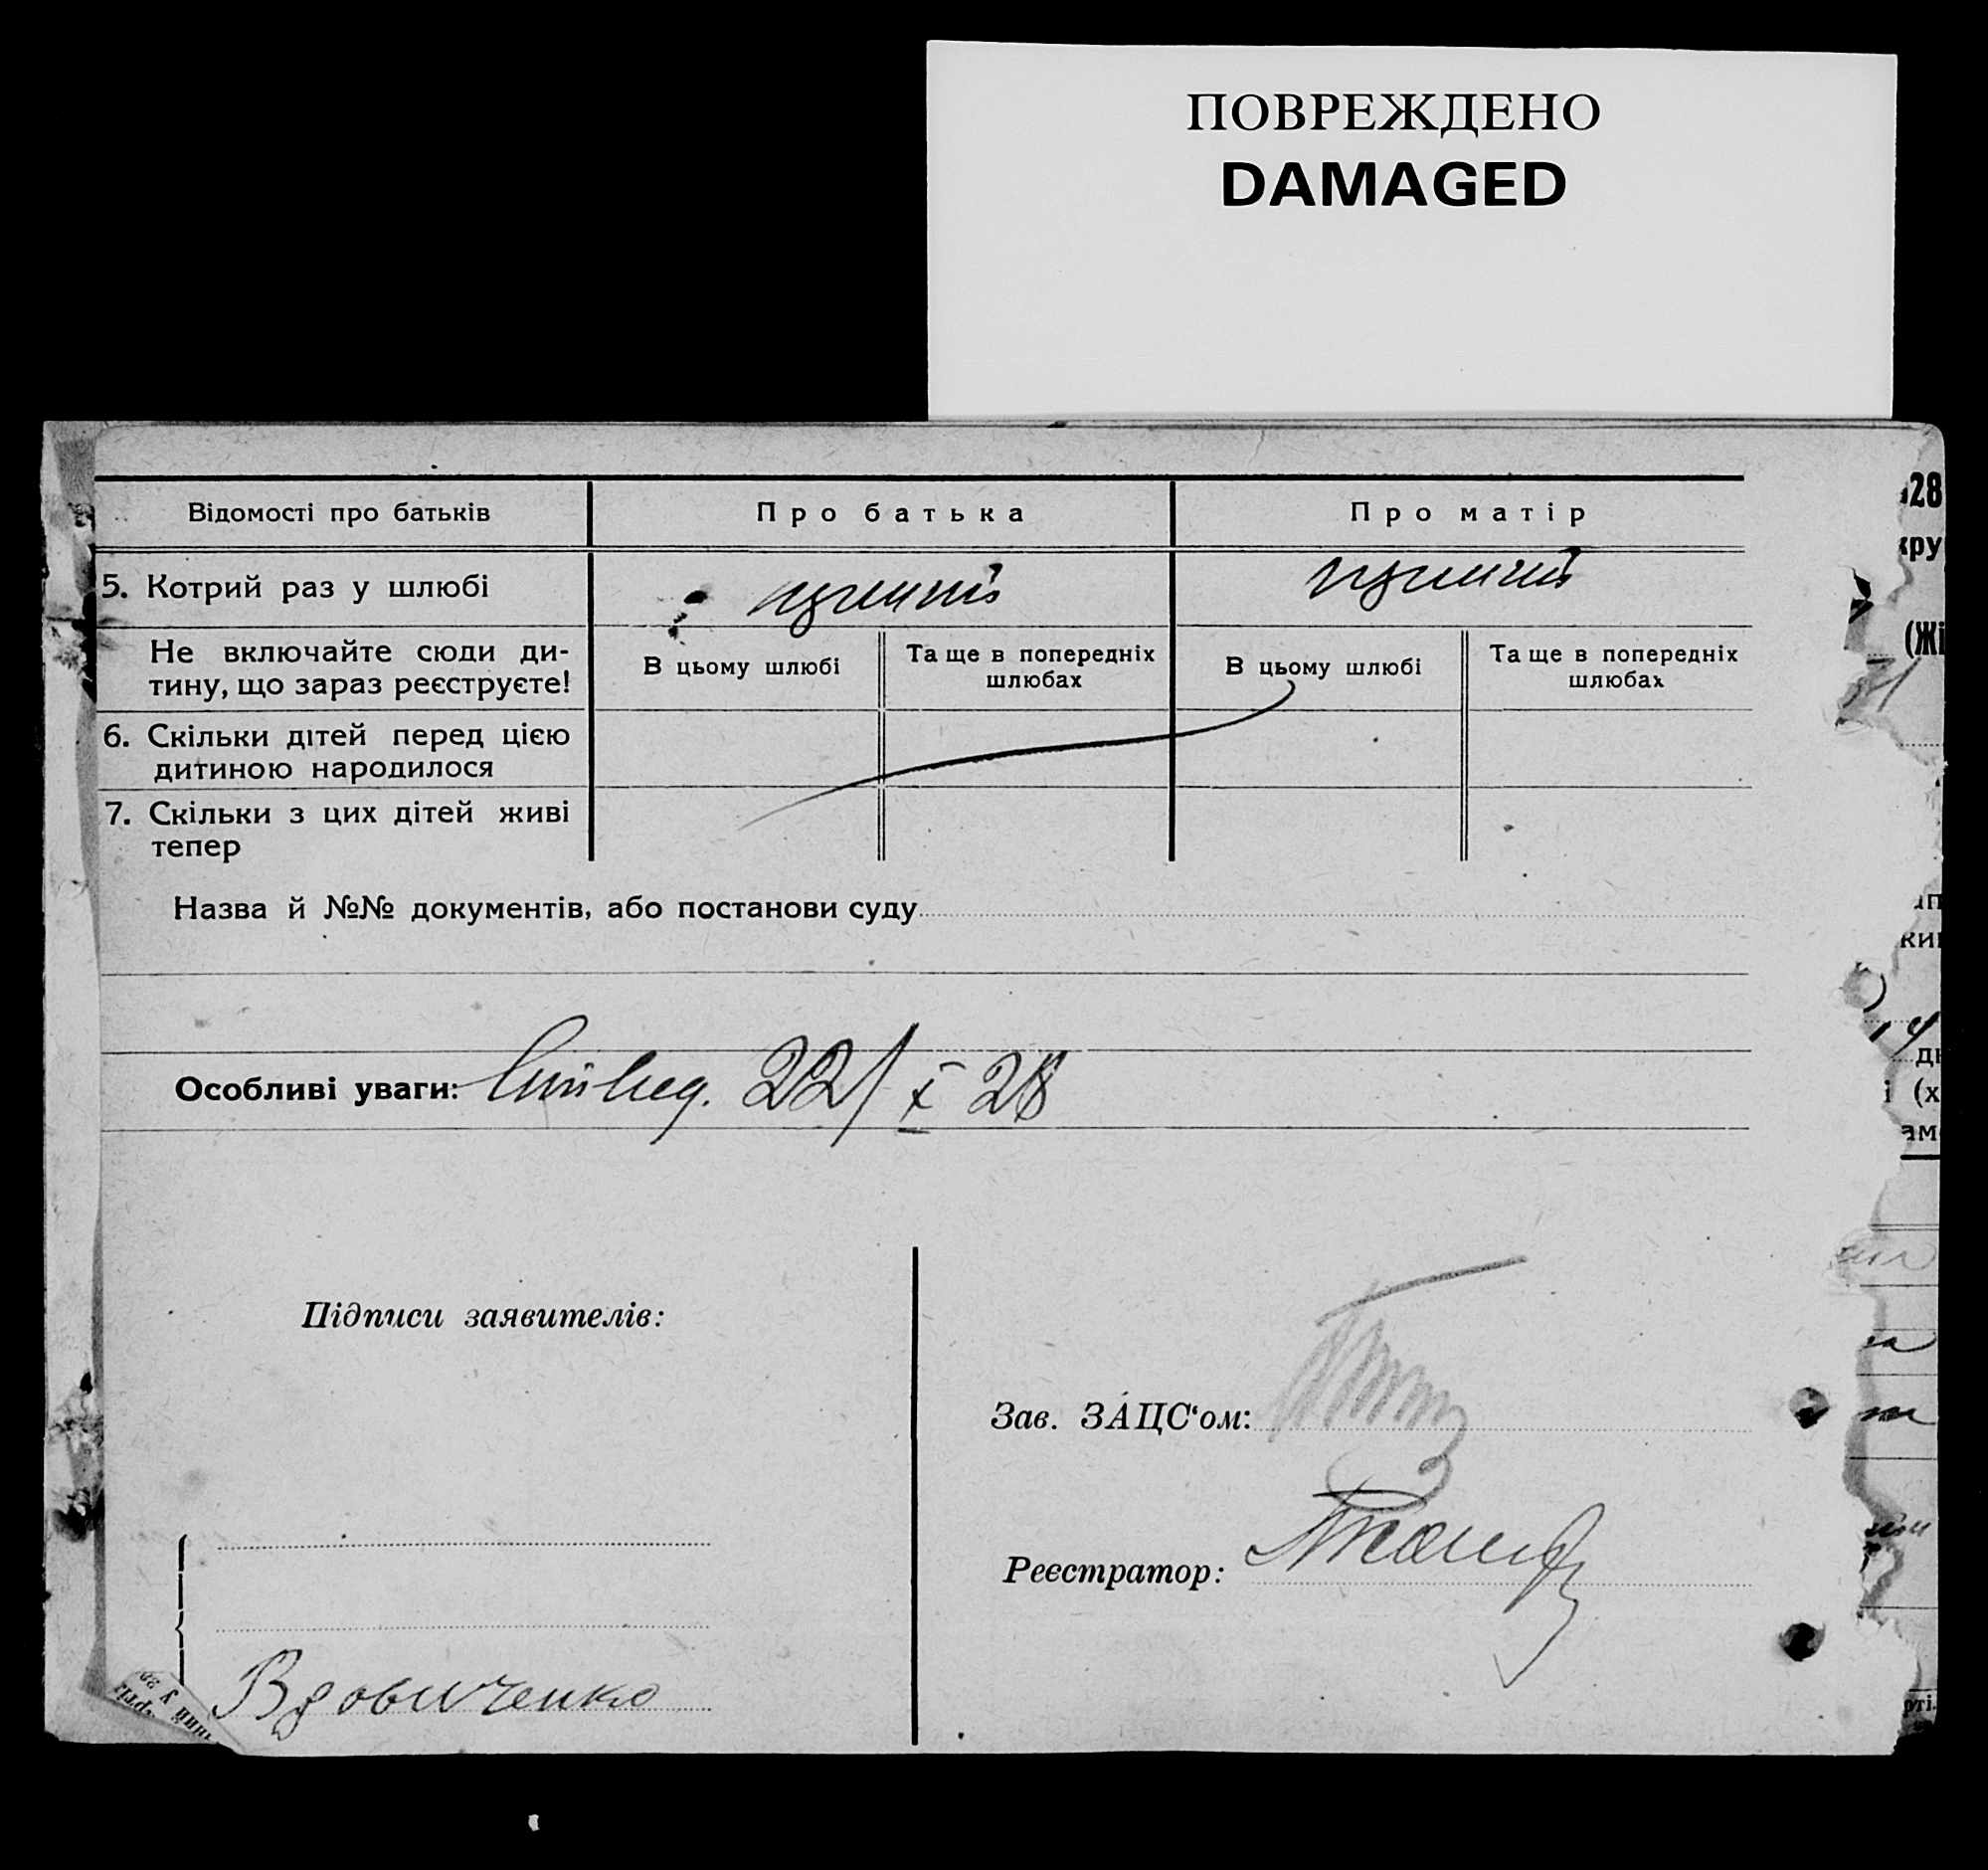 ПОВРЕЖДЕНО
DAMAGED
Відомості про батьків
Про батька
Про матір
5. Котрий раз у шлюбі
Не включайте сюди ди-
тину, що зараз реєструєте!
В цьому шлюбі
Та ще в попередніх
шлюбах
В цьому шлюбі
Та ще в попередніх
шлюбах
6. Скільки дітей перед цією
дитиною народилося
7. Скільки з цих дітей живі
тепер
Назва й №№ документів, або постанови суду
Особливі уваги: 22/X 28
Підписи заявителів:
Зав. ЗАЦС‘ом:
Реєстратор:
Вдовиченко
28
(Жі